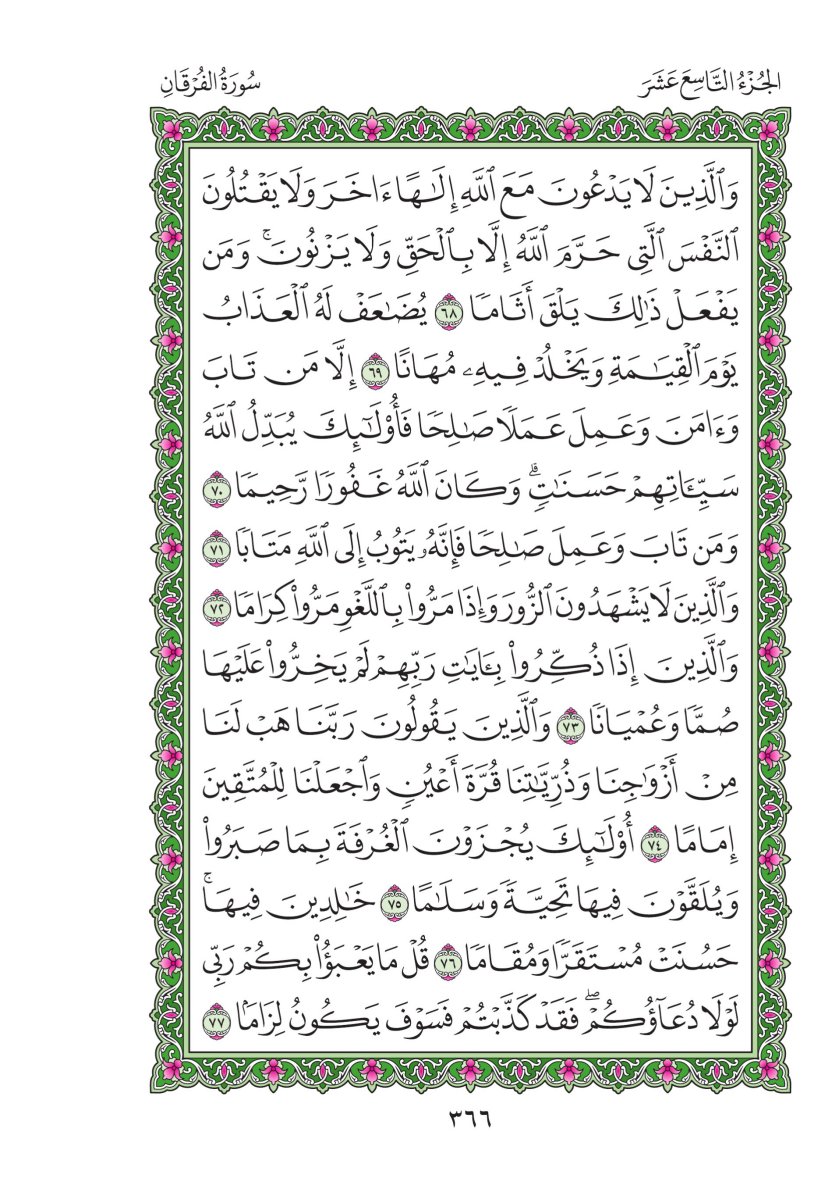 الجُزْءُ التَّاسِعَ عَشَرَ
سُورَةُ الفُرْقَانِ
وَٱلَّذِينَ لَا يَدْعُونَ مَعَ ٱللَّهِ إِلَٰهًا ءَاخَرَ وَلَا يَقْتُلُونَ
ٱلنَّفْسَ ٱلَّتِى حَرَّمَ ٱللَّهُ إِلَّا بِٱلْحَقِّ وَلَا يَزْنُونَۚ وَمَن
يَفْعَلْ ذَٰلِكَ يَلْقَ أَثَامًا ٦٨ يُضَٰعَفْ لَهُ ٱلْعَذَابُ
يَوْمَ ٱلْقِيَٰمَةِ وَيَخْلُدْ فِيهِۦ مُهَانًا ٦٩ إِلَّا مَن تَابَ
وَءَامَنَ وَعَمِلَ عَمَلًا صَٰلِحًا فَأُو۟لَٰٓئِكَ يُبَدِّلُ ٱللَّهُ
سَيِّـَٔاتِهِمْ حَسَنَٰتٍۗ وَكَانَ ٱللَّهُ غَفُورًا رَّحِيمًا ٧٠
وَمَن تَابَ وَعَمِلَ صَٰلِحًا فَإِنَّهُۥ يَتُوبُ إِلَى ٱللَّهِ مَتَابًا ٧١
وَٱلَّذِينَ لَا يَشْهَدُونَ ٱلزُّورَ وَإِذَا مَرُّوا۟ بِٱللَّغْوِ مَرُّوا۟ كِرَامًا ٧٢
وَٱلَّذِينَ إِذَا ذُكِّرُوا۟ بِـَٔايَٰتِ رَبِّهِمْ لَمْ يَخِرُّوا۟ عَلَيْهَا
صُمًّا وَعُمْيَانًا ٧٣ وَٱلَّذِينَ يَقُولُونَ رَبَّنَا هَبْ لَنَا
مِنْ أَزْوَٰجِنَا وَذُرِّيَّٰتِنَا قُرَّةَ أَعْيُنٍ وَٱجْعَلْنَا لِلْمُتَّقِينَ
إِمَامًا ٧٤ أُو۟لَٰٓئِكَ يُجْزَوْنَ ٱلْغُرْفَةَ بِمَا صَبَرُوا۟
وَيُلَقَّوْنَ فِيهَا تَحِيَّةً وَسَلَٰمًا ٧٥ خَٰلِدِينَ فِيهَاۚ
حَسُنَتْ مُسْتَقَرًّا وَمُقَامًا ٧٦ قُلْ مَا يَعْبَؤُا۟ بِكُمْ رَبِّى
لَوْلَا دُعَآؤُكُمْۖ فَقَدْ كَذَّبْتُمْ فَسَوْفَ يَكُونُ لِزَامًۢا ٧٧
٣٦٦